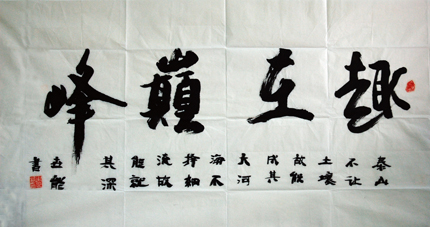 趣在巔峰
泰山
不让
土壤
故能
成其
大河
海不
择细
流故
能就
其深
書